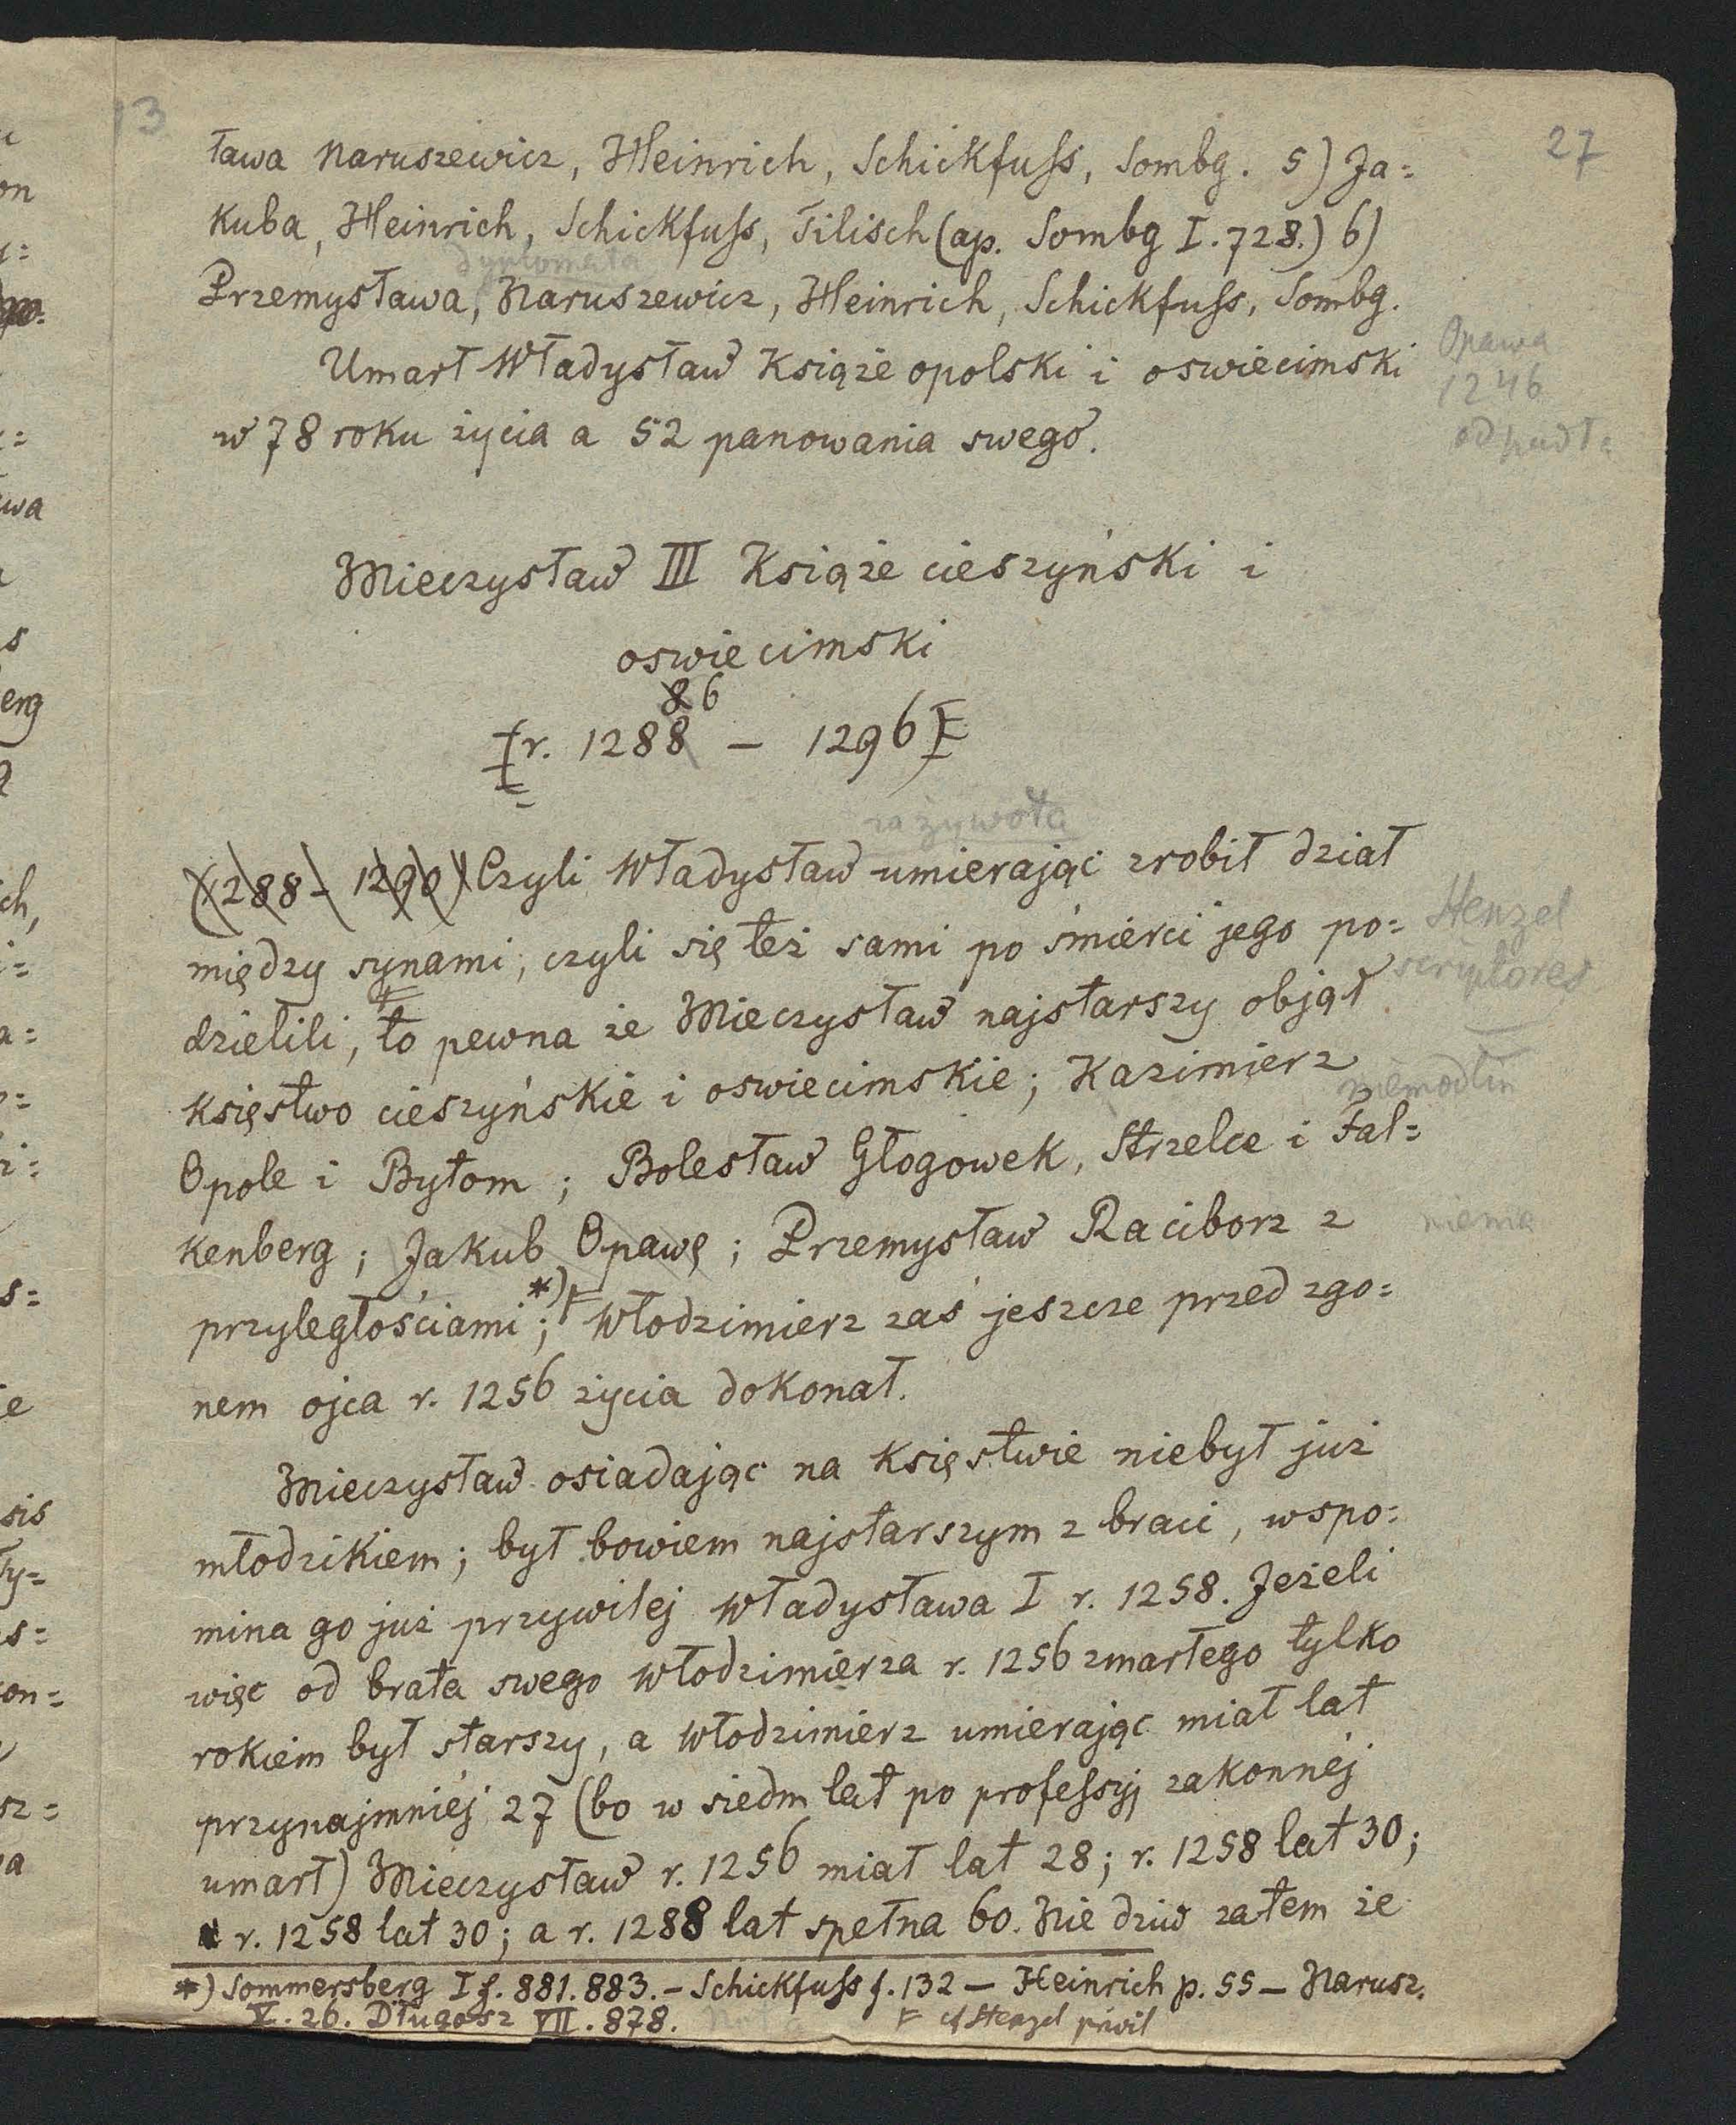 13
27
ława Naruszewicz, Heinrich, Schickfuss, Sombg. 5) Ja=
kuba, Heinrich, Schickfuss, Tilisch (ap. Sombg I. 728.) 6)
dyplomata
Przemysława, Naruszewicz, Heinrich, Schickfuss, Sombg.
Umarł Władysław Książe opolski i oswiecimski
w 78 roku życia a 52 panowania swego.
Opawa
1246
odpadła
Mieczysław III Książe cieszyński i
oswiecimski
86
[r. 1288 – 1296]
za żywota
(1288 – 1290) Czyli Władysław umierając zrobił dział
między synami, czyli się też sami po śmierci jego po=
Stenzel
scriptores
dzielili, to pewna że Mieczysław najstarszy objął
księstwo cieszyńskie i oswiecimskie; Kazimierz
niemodlin
Opole i Bytom; Bolesław Głogowek, Strzelce i Fal=
kenberg; Jakub Opawę; Przemysław Raciborz z
niema
przyległościami;*) Włodzimierz zaś jeszcze przed zgo=
nem ojca r. 1256 życia dokonał.
Mieczysław osiadając na księstwie niebył już
młodzikiem; był bowiem najstarszym z braci, wspo=
mina go już przywilej Władysława I r. 1258. Jeżeli
więc od brata swego Włodzimierza r. 1256 zmarłego tylko
rokiem był starszy, a Włodzimierz umierając miał lat
przynajmniéj 27 (bo w siedm lat po professyj zakonnéj
umarł) Mieczysław r. 1256 miał lat 28; r. 1258 lat 30;
r. 1258 lat 30; a r. 1288 lat spełna 60. Nie dziw zatem że
*) Sommersberg I f. 881. 883. – Schickfuss f. 132 – Heinrich p. 55 – Narusz.
V. 26. Długosz VII. 878.
cf Stenzel privil